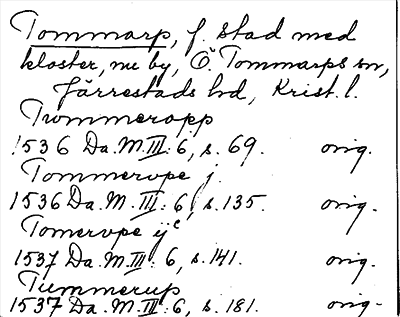 Tommarp, f. stad med
kloster, nu by, Ö. Tommarps sn,
Järrestads hd, Krist. l.
Trommeropp
1536 Da. M. III: 6, s. 69. orig.
Tommerope j.
1536 Da. M. III: 6, s. 135. orig.
Tomerope ij^e
1537 Da. M. III: 6, s. 141. orig.
Tummerup
1537 Da. M. III: 6, s. 181. orig.